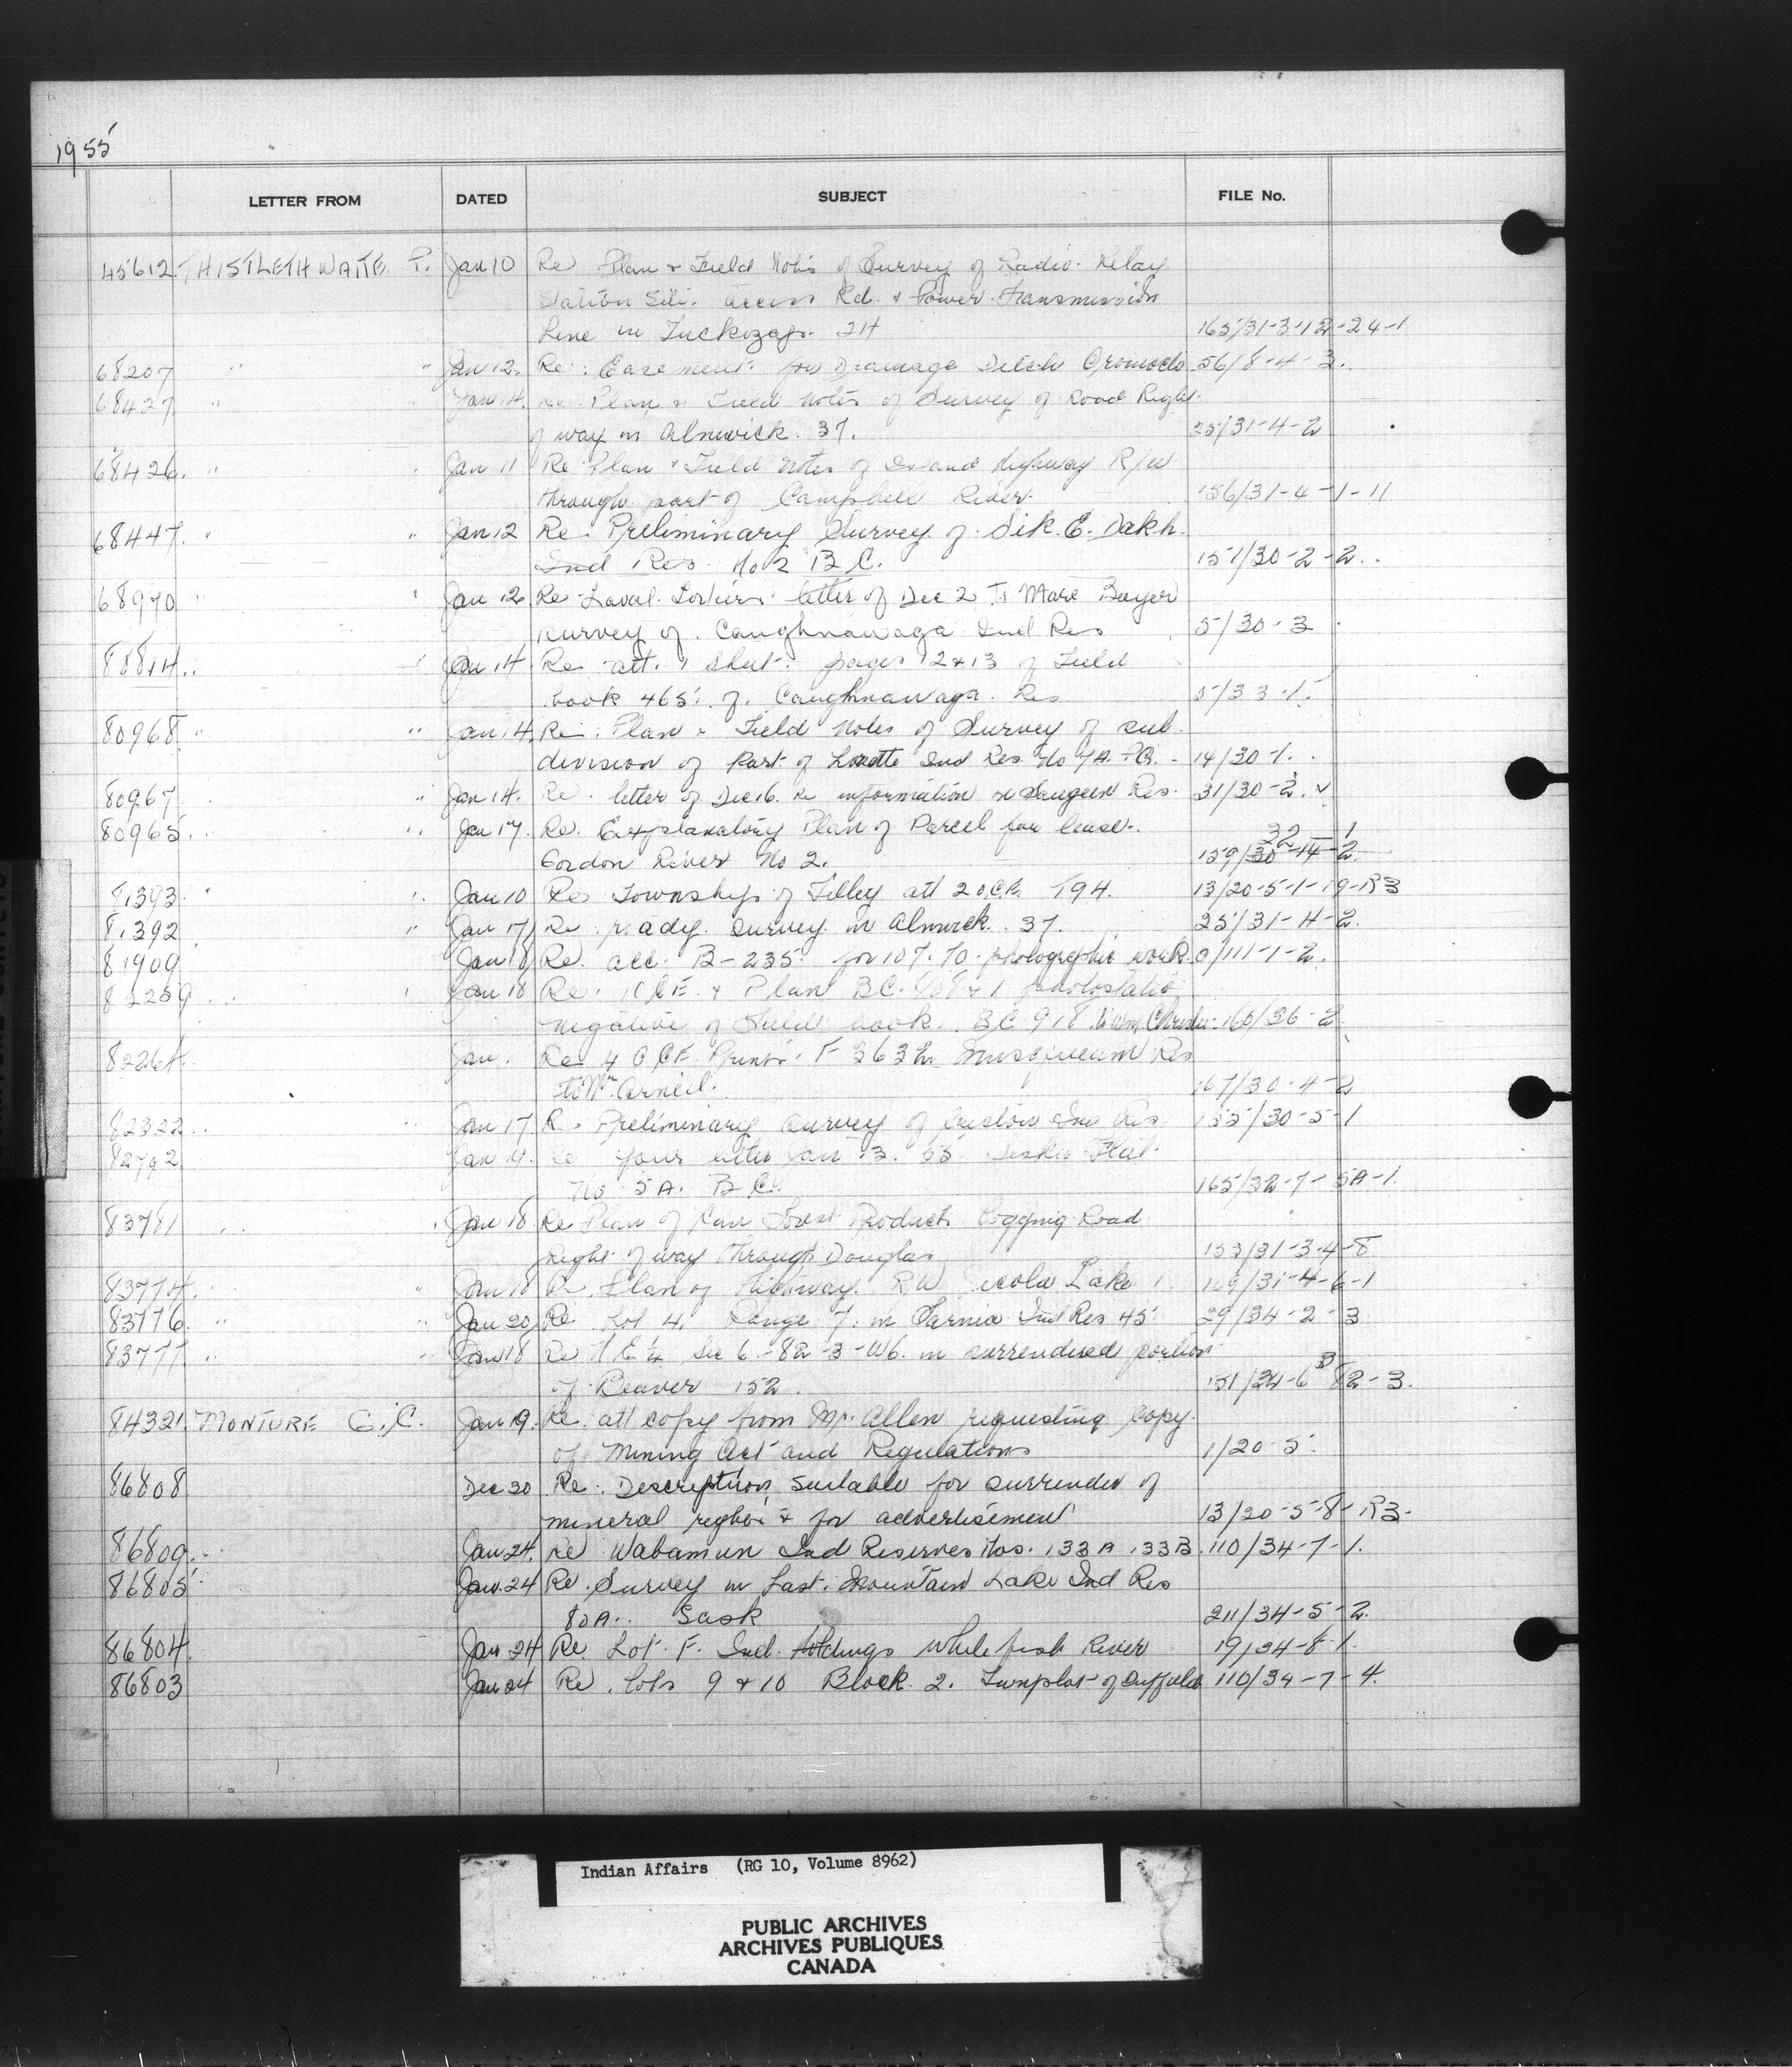 1955
LETTER FROM DATED SUBJECT FILE No.
45612 THISTLETHWAITE T. Jan 10 Re Plan & Field Notes of Survey of Radio Relay
Station Site. Access Rd. & Power Transmission
Line in Tuckozap. 24 165/31-3-12-24-1
68207 " " Jan 12. Re: Easement for Drainage Ditch Oromocto 56/8-4-3.
68427 " Jan 14. Re Plan & Field Notes of Survey of Road Right
of way in Alnwick. 37. 25/31-4-2
68426. " " Jan 11 Re Plan & Field Notes of Island Highway R/W
through part of Campbell River. 156/31-4-1-11
68447. " " Jan 12 Re. Preliminary Survey of Sik. E. Dakh.
Ind Res. No 2 B.C. 151/30-2-2..
68970 " " Jan 12 Re Laval Fortiers letter of Dec 2 To Marc Boyer
survey of Caughnawaga Ind Res 5/30-3
80814.. " Jan 14 Re att. 1 sheet. pages 12 & 13 of Field
book 465 of Caughnawaga Res 5/33-1.
80968 " " Jan 14. Re: Plan & Field Notes of Survey of sub
division of Part of Lorette Ind Res No 7A. P.Q. - 14/30-1.
80967 " Jan 14. Re. letter of Dec 16. re information re Saugeen Res. 31/30-3. v
80965. " " Jan 17. Re. Explanatory Plan of Parcel for lease. 32 - 1
Gordon River No 2. 159/30-14-2.
81393. " " Jan 10 Re Township of Tilley att 2 O.C.E. 194. 13/20-5-1-19-R3
81392 " Jan 17 Re r. ady. Survey in Alnwick. 37. 25/31-4-2.
81909 Jan 18 Re. acc. B-235. for 107.70 photographic work. 0/111-1-2.
82259 " Jan 18 Re. 1 O.C.E. & Plan B.C. & 1 photostatic
negative of Field book. B.C. 918. to Wm. Christie 160/36-2
82264. Jan. Re 4 O.C.E. Prints F 3632 Musqueam Res
to Mr. Arneil. 167/30-4-2
82322 " Jan 17 Re Preliminary Survey of Ind Res 155/30-5-1
82792 Jan 19. Re your letter Jan 13. 55 Flat
No 5A. B.C. 165/32-7-5A-1
83781 " Jan 18 Re Plan of Can Forest Products Logging Road
Right of way through Douglas 153/31-3-4-8
83774. " " Jan 18 Re. Plan of Highway R W Nicola Lake 1. 169/31-4-6-1
83776. " " Jan 20 Re Lot 4. Range 7. in Sarnia Ind Res 45 29/34-2-3
83777 " " Jan 18 Re N E ¼ Sec 6.-82-3-W6. in surrendered portion
of Beaver 152. 151/34-6 82-3.
84321. MONTURE G.C. Jan 19. Re. att copy from Mr. Allen requesting copy
of Mining Act and Regulations 1/20-5.
86808 Dec 30 Re. Description suitable for surrender of
mineral rights & for advertisement 13/20-5-8-R3-
86809.. Jan 24. Re Wabamun Ind Reserves Nos. 133A 133B. 110/34-7-1.
86805 Jan. 24 Re. Survey in Last Mountain Lake Ind Res
80A.. Sask 211/34-5-2.
86804. Jan 24 Re. Lot F. Ind. Holdings Whitefish River 19/34-8-1.
86803 Jan 24 Re. lots 9 & 10 Block 2. Twnplot of Duffield 110/34-7-4.
Indian Affairs (RG 10, Volume 8962)
PUBLIC ARCHIVES
ARCHIVES PUBLIQUES
CANADA